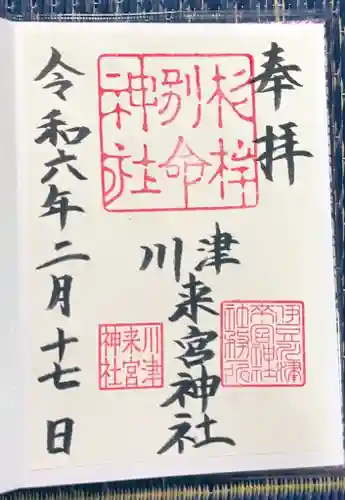 奉拝
杉桙
別命
神社
川津
来宮神社
來宮神社
社務所
川津
来宮
神社
令和六年二月十七日